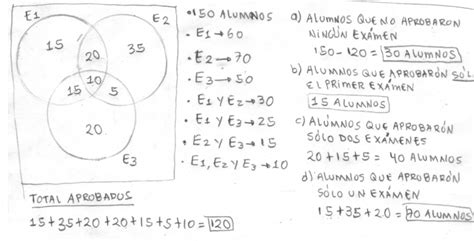 E1
E2
15
20
35
10
15
5
20
E3
TOTAL APROBADOS
15+35+20+20+15+5+10=120
•150 ALUMNOS
• E1→60
• E2→70
• E3→50
• E1 Y E2→30
• E1 Y E3→25
• E2 Y E3→15
• E1, E2 Y E3→10
a) ALUMNOS QUE NO APROBARON
NINGÚN EXÁMEN
150-120=30 ALUMNOS
b) ALUMNOS QUE APROBARÓN SÓL
EL PRIMER EXÁMEN
15 ALUMNOS
c) ALUMNOS QUE APROBARÓN
SÓLO DOS EXÁMENES
20+15+5= 40 ALUMNOS
d) ALUMNOS QUE APROBARÓN
SÓLO UN EXÁMEN
15+35+20=70 ALUMNOS